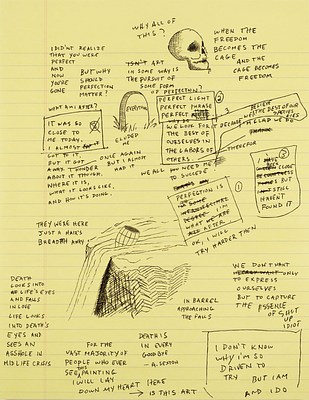 WHY ALL OF
THIS?
WHEN THE
FREEDOM
BECOMES THE
CAGE AND
THE CAGE
BECOMES
FREEDOM
I DIDN'T REALIZE
THAT YOU WERE
PERFECT
AND
NOW
YOU'RE
GONE
BUT WHY
SHOULD
PERFECTION
MATTER?
ISN'T ART
IN SOME WAY IS
THE PURSUIT OF
SOME FORM
OF PERFECTION?
PERFECT LIGHT
PERFECT PHRASE
PERFECT
WE LOOK FOR IT BECAUSE
THE BEST
OF OURSELVES
IN THE LABORS OF
OTHERS.
WE ALL NEED ME
TO SUCCEED
WHAT AM I AFTER?
IT WAS SO
CLOSE TO
ME TODAY.
I ALMOST
GOT TO IT.
BUT IT GOT
AWAY. I WONDER
ABOUT IT THOUGH.
WHERE IT IS,
WHAT IT LOOKS LIKE,
AND HOW IT'S DOING.
EVERYTHING
ELUDED
ME
ONCE AGAIN
BUT I ALMOST
HAD IT
THE BEST OF OUR
SPECIES
I
CLOSE
BUT I
STILL
HAVEN'T
FOUND IT
PERFECTION IS
WHAT
WE ARE
AFTER
OK, I WILL
TRY HARDER THEN
THEY WERE HERE
JUST A HAIR'S
BREADTH AWAY
IN BARREL
APPROACHING
THE FALLS
WE DON'T WANT
ONLY TO
EXPRESS
OURSELVES
BUT TO CAPTURE
THE ESSENCE
OF SHUT
UP
IDIOT
DEATH
LOOKS INTO
LIFE'S EYES
AND FALLS
IN LOVE
LIFE LOOKS
INTO DEATH'S
EYES AND
SEES AN
ASSHOLE IN
MID LIFE CRISIS
FOR THE
VAST MAJORITY OF
PEOPLE WHO EVER
SEE PAINTING
I WILL LAY
DOWN MY HEART HERE
IS THIS ART
DEATH IS
IN EVERY
GOODBYE
- A. SEXTON
I DON'T KNOW
WHY I'M SO
DRIVEN TO
TRY BUT I AM
AND I DO